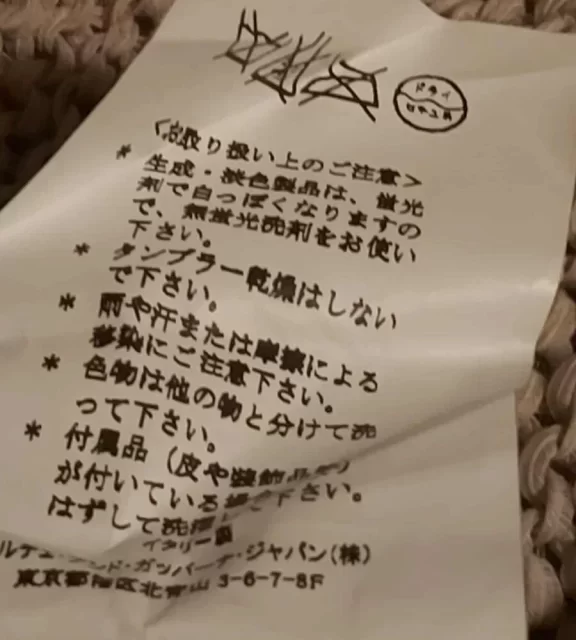 ドライ
セキユ系
<お取り扱い上のご注意>
* 生成・淡色製品は、蛍光
剤で白っぽくなりますの
で、無蛍光洗剤をお使い
下さい。
* タンブラー乾燥はしない
で下さい。
* 雨や汗または摩擦による
移染にご注意下さい。
* 色物は他の物と分けて洗
って下さい。
* 付属品（皮や装飾品
が付いている 下さい。
はずして洗濯
イタリー製
ジャパン(株)
東京都港区北青山 3-6-7-8F